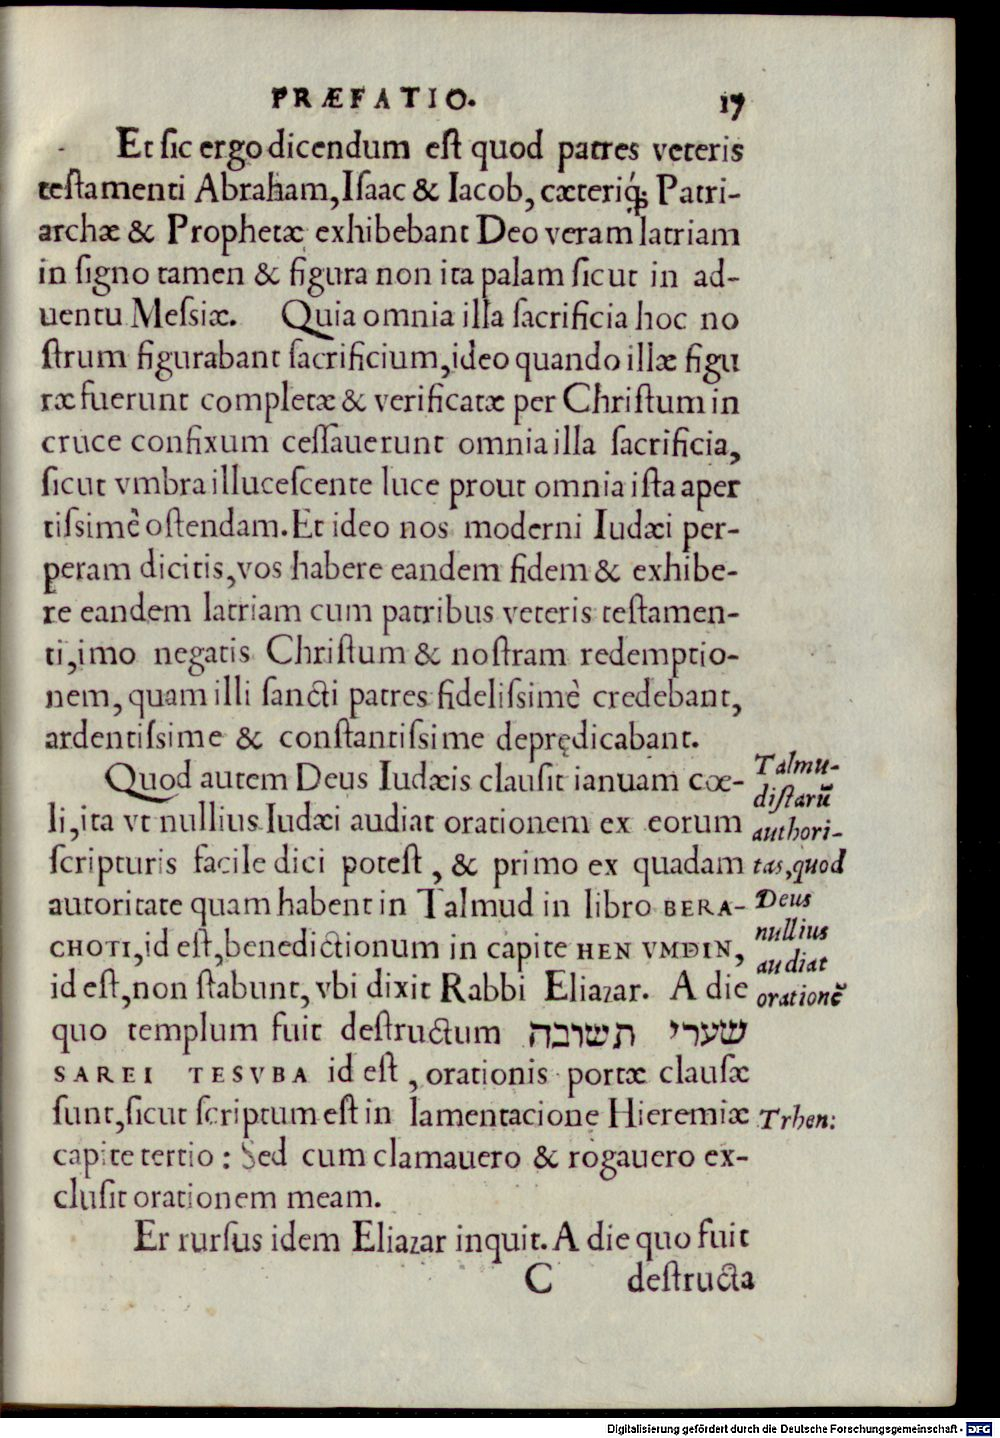 PRÆFATIO. 17
Et sic ergo dicendum est quod patres veteris
testamenti Abraham, Isaac & Iacob, cæteriq́; Patri-
archæ & Prophetæ exhibebant Deo veram latriam
in signo tamen & figura non ita palam sicut in ad-
uentu Messiæ. Quia omnia illa sacrificia hoc no
strum figurabant sacrificium, ideo quando illæ figu
ræ fuerunt completæ & verificatæ per Christum in
cruce confixum cessauerunt omnia illa sacrificia,
sicut vmbra illucescente luce prout omnia ista aper
tissimè ostendam. Et ideo nos moderni Iudæi per-
peram dicitis, vos habere eandem fidem & exhibe-
re eandem latriam cum patribus veteris testamen-
ti, imo negatis Christum & nostram redemptio-
nem, quam illi sancti patres fidelissimè credebant,
ardentissime & constantissime deprędicabant.
Quod autem Deus Iudæis clausit ianuam cœ-
li, ita vt nullius Iudæi audiat orationem ex eorum
scripturis facile dici potest, & primo ex quadam
autoritate quam habent in Talmud in libro BERA-
CHOTI, id est, benedictionum in capite HEN VMDIN,
id est, non stabunt, vbi dixit Rabbi Eliazar. A die
quo templum fuit destructum שערי תשובה
SAREI TESVBA id est, orationis portæ clausæ
sunt, sicut scriptum est in lamentacione Hieremiæ
capite tertio: Sed cum clamauero & rogauero ex-
clusit orationem meam.
Er rursus idem Eliazar inquit. A die quo fuit
C destructa
Talmu-
distarū
authori-
tas, quod
Deus
nullius
audiat
orationē
Trhen:
Digitalisierung gefördert durch die Deutsche Forschungsgemeinschaft - DFG